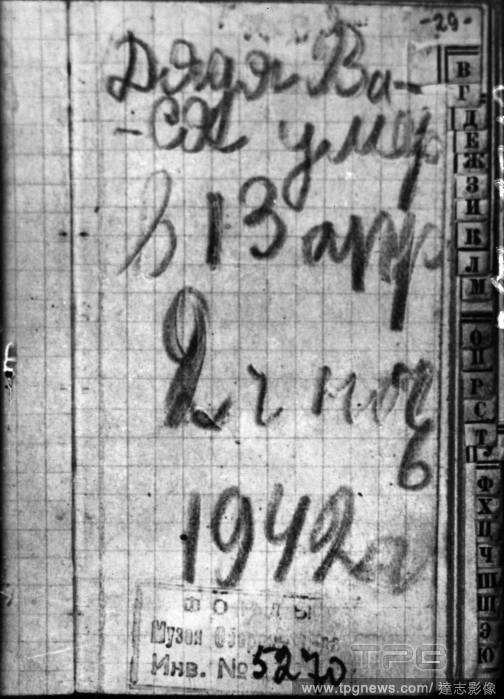 -29-
Дядя Ва-
-ся умер
в 13 апр
2 ч ноч
ь
1942 г
В
Г
Д
Е
Ж
З
И
К
Л
М
О
П
Р
С
Т
У
Ф
Х
Ц
Ч
Ш
Щ
Э
Ю
ФОНДЫ
Музея
Инв. № 5270
TPG
www.tpgnews.com/達志影像